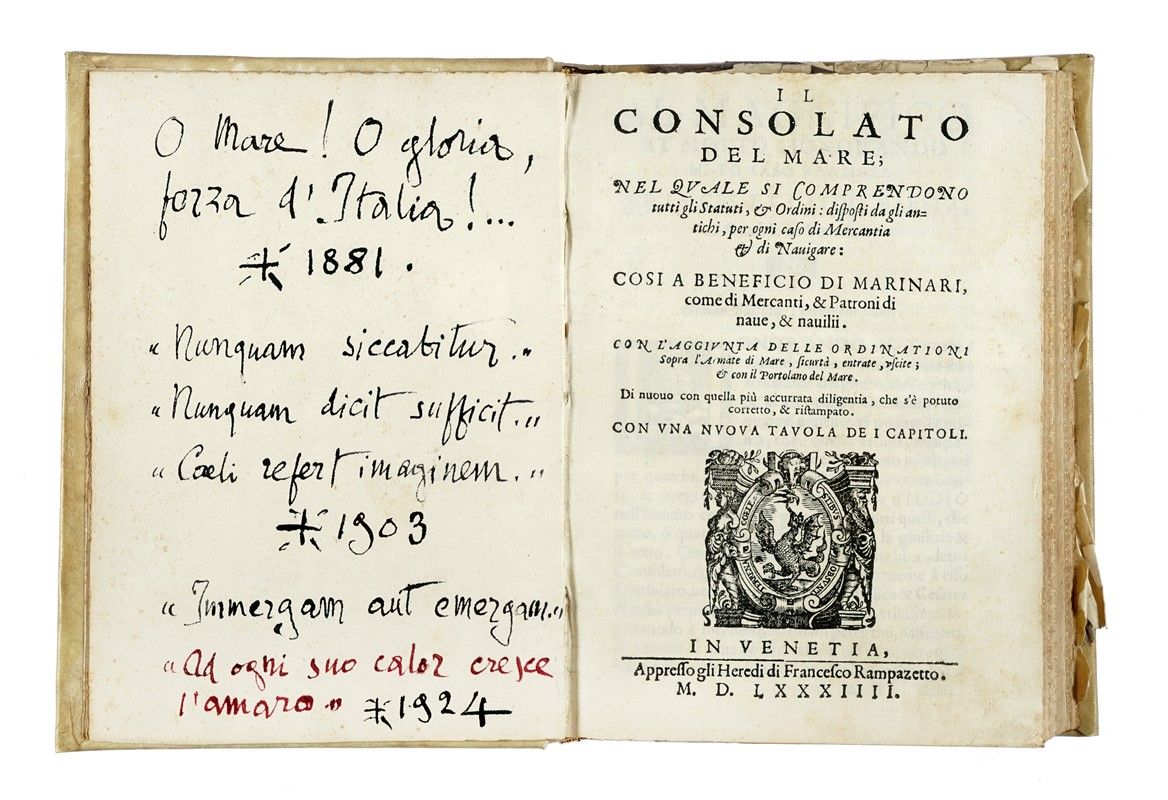 O Mare! O gloria,
forza d'Italia!...
1881.
"Nunquam siccabitur."
"Nunquam dicit sufficit."
"Coeli refert imaginem."
1903
"Immergam aut emergam."
"Ad ogni suo calor cresce
l'amaro" 1924
IL
CONSOLATO
DEL MARE;
NEL QVALE SI COMPRENDONO
tutti gli Statuti, & Ordini: disposti da gli an=
tichi, per ogni caso di Mercantia
& di Nauigare:
COSI A BENEFICIO DI MARINARI,
come di Mercanti, & Patroni di
naue, & nauilii.
CON L'AGGIVNTA DELLE ORDINATIONI
Sopra l'Armate di Mare, sicurtà, entrate, vscite;
& con il Portolano del Mare.
Di nuouo con quella più accurrata diligentia, che s'è potuto
corretto, & ristampato.
CON VNA NVOVA TAVOLA DE I CAPITOLI.
IN VENETIA,
Appresso gli Heredi di Francesco Rampazetto.
M. D. LXXXIIII.